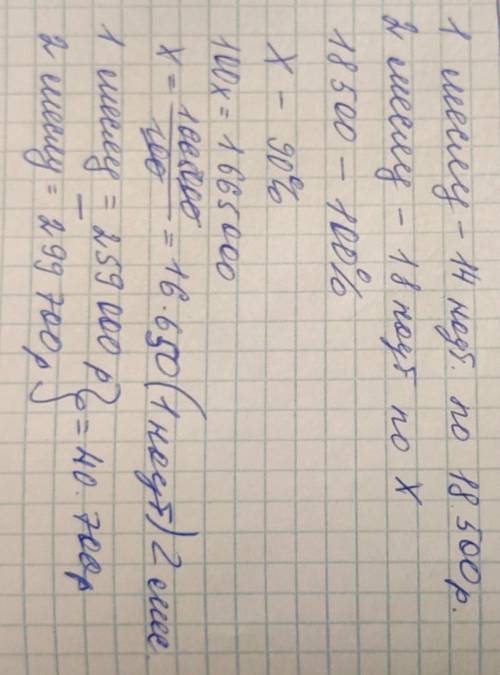 1 месяц - 14 ноут. по 18.500р.
2 месяц - 18 ноут по X
18500 - 100%
X - 90%
100x = 1665000
x = 1665000/100 = 16.650 (1 ноут) 2 мес.
1 месяц = 259000 р
–
2 месяц = 299700р } = 40.700р